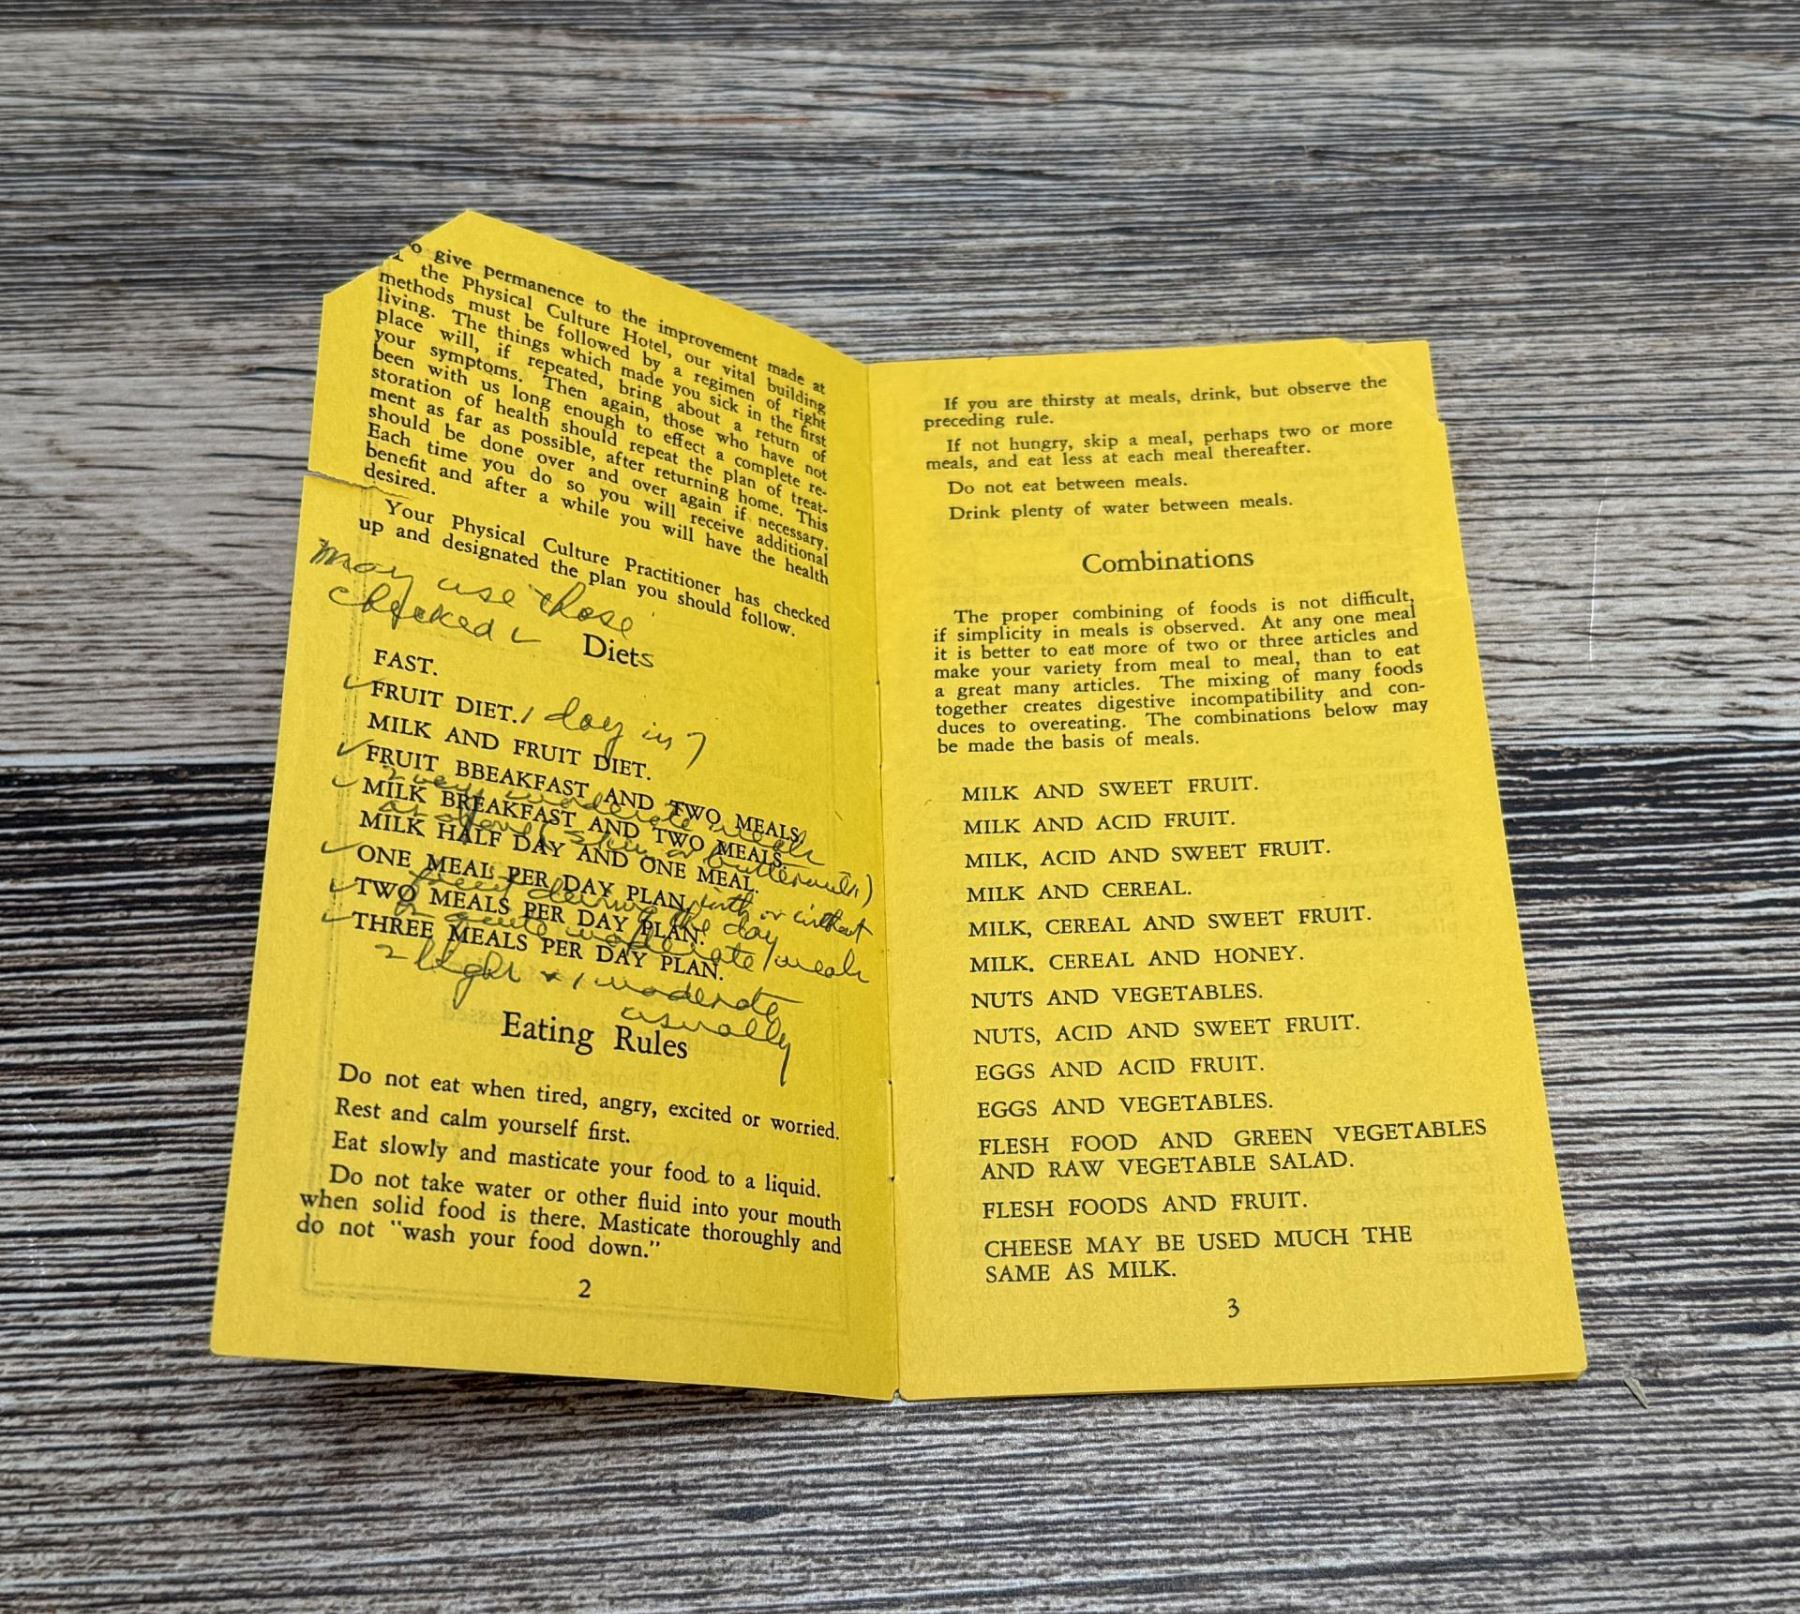 To give permanence to the improvement made at
the Physical Culture Hotel, our vital building
methods must be followed by a regimen of right
living. The things which made you sick in the first
place will, if repeated, bring about a return of
your symptoms. Then again, those who have not
been with us long enough to effect a complete re-
storation of health should repeat the plan of treat-
ment as far as possible, after returning home. This
should be done over and over again if necessary.
Each time you do so you will receive additional
benefit and after a while you will have the health
desired.
Your Physical Culture Practitioner has checked
up and designated the plan you should follow.
May use those
checked ✓
Diets
FAST.
✓ FRUIT DIET. 1 day in 7
MILK AND FRUIT DIET.
✓ FRUIT BBEAKFAST AND TWO MEALS.
2 very moderate meals
✓ MILK BREAKFAST AND TWO MEALS.
as above (skim or buttermilk)
MILK HALF DAY AND ONE MEAL.
✓ ONE MEAL PER DAY PLAN, with or without
fruit during the day
✓ TWO MEALS PER DAY PLAN.
2 quite moderate meals
✓ THREE MEALS PER DAY PLAN.
2 light + 1 moderate
usually
Eating Rules
Do not eat when tired, angry, excited or worried.
Rest and calm yourself first.
Eat slowly and masticate your food to a liquid.
Do not take water or other fluid into your mouth
when solid food is there. Masticate thoroughly and
do not "wash your food down."
2
If you are thirsty at meals, drink, but observe the
preceding rule.
If not hungry, skip a meal, perhaps two or more
meals, and eat less at each meal thereafter.
Do not eat between meals.
Drink plenty of water between meals.
Combinations
The proper combining of foods is not difficult,
if simplicity in meals is observed. At any one meal
it is better to eat more of two or three articles and
make your variety from meal to meal, than to eat
a great many articles. The mixing of many foods
together creates digestive incompatibility and con-
duces to overeating. The combinations below may
be made the basis of meals.
MILK AND SWEET FRUIT.
MILK AND ACID FRUIT.
MILK, ACID AND SWEET FRUIT.
MILK AND CEREAL.
MILK, CEREAL AND SWEET FRUIT.
MILK, CEREAL AND HONEY.
NUTS AND VEGETABLES.
NUTS, ACID AND SWEET FRUIT.
EGGS AND ACID FRUIT.
EGGS AND VEGETABLES.
FLESH FOOD AND GREEN VEGETABLES
AND RAW VEGETABLE SALAD.
FLESH FOODS AND FRUIT.
CHEESE MAY BE USED MUCH THE
SAME AS MILK.
3